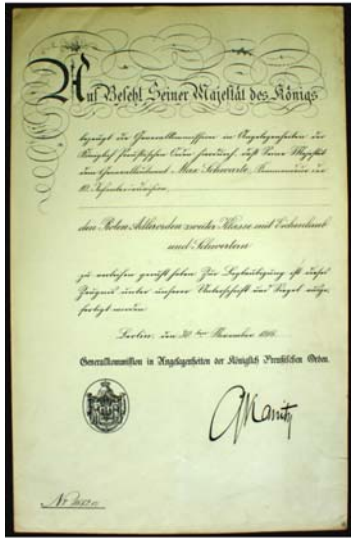 Auf Befehl Seiner Majestät des Königs
bezeugt die Generalkommission in Angelegenheiten der
Königlich Preußischen Orden hierdurch, daß Seine Majestät
dem Generalleutnant Max Schwarte, Kommandeur der
10. Infanteriedivision,
den Roten Adlerorden zweiter Klasse mit Eichenlaub
und Schwertern
zu verleihen geruht haben. Zur Beglaubigung ist dieses
Zeugnis unter unserer Unterschrift und Siegel ausge-
fertigt worden.
Berlin, den 30 ten November
Generalkommission in Angelegenheiten der Königlich Preußischen Orden.